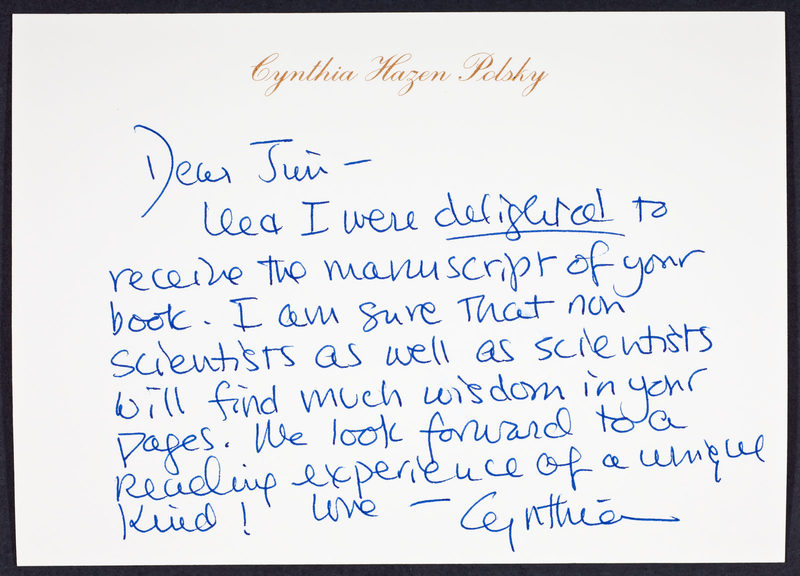 Cynthia Hazen Polsky
Dear Jim —
Leon & I were delighted to
receive the manuscript of your
book. I am sure that non
scientists as well as scientists
will find much wisdom in your
pages. We look forward to a
reading experience of a unique
kind! Love — Cynthia